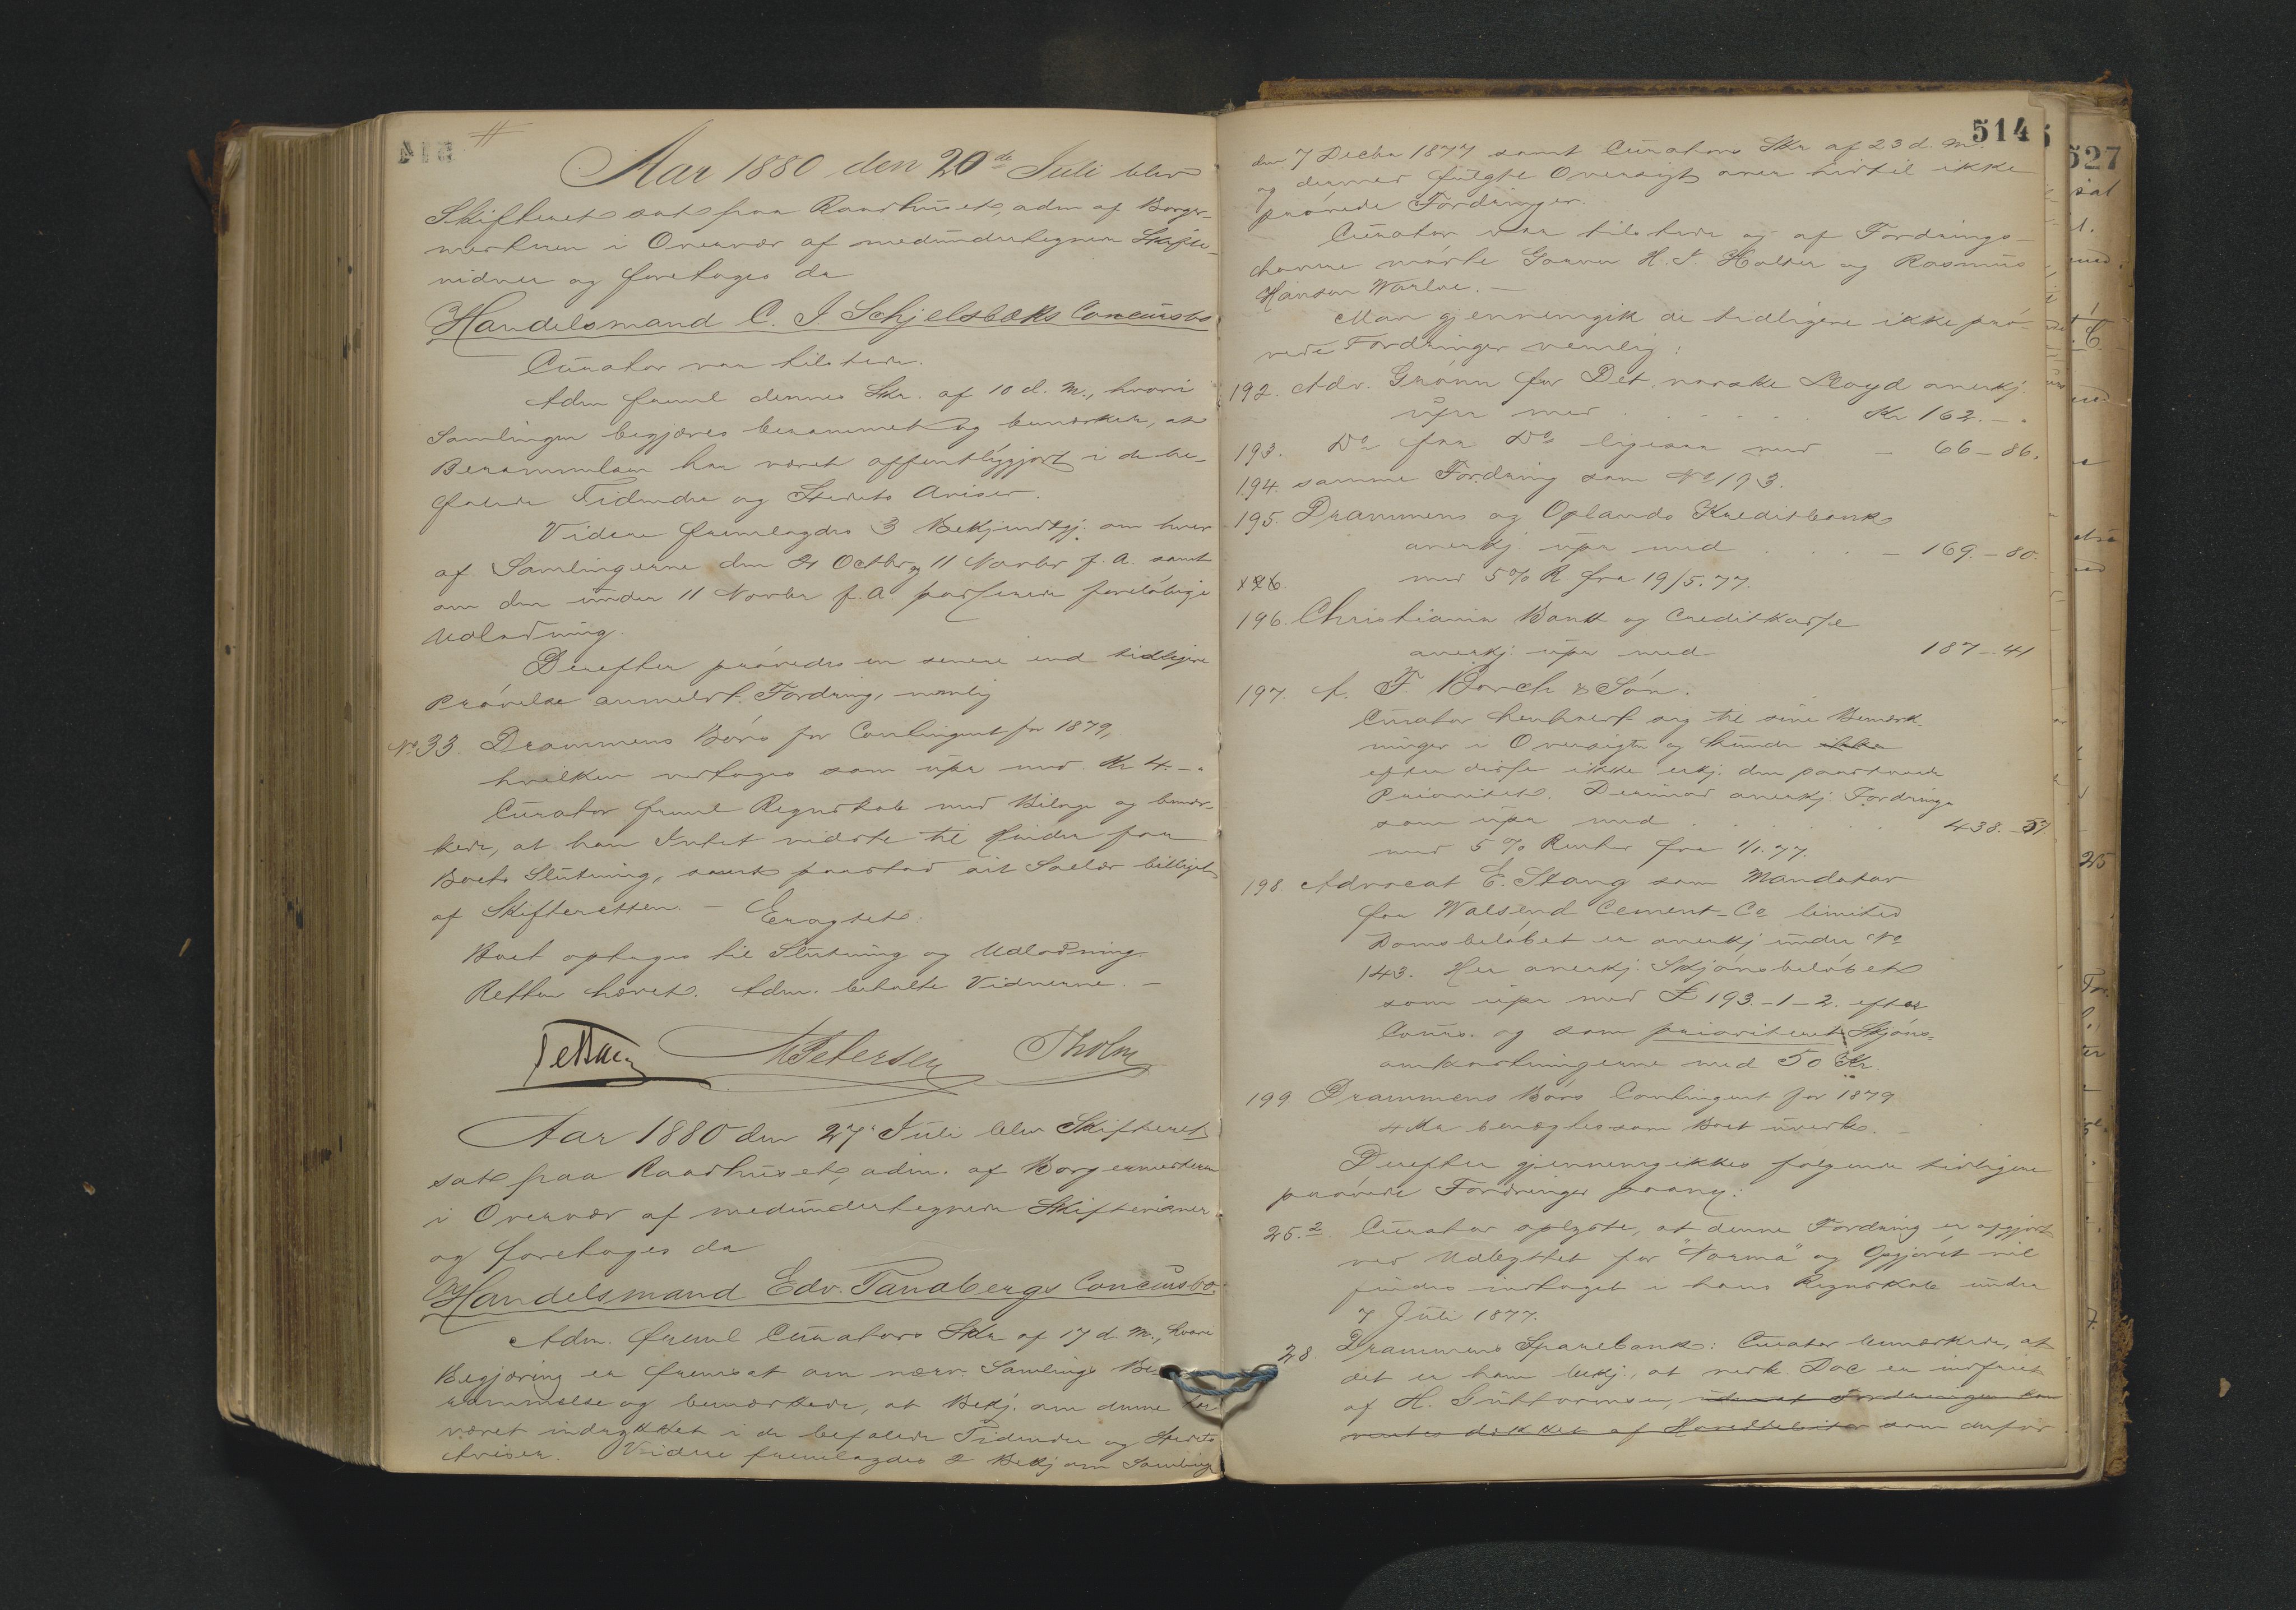 Aar 1880 den 20de Juli blev
Skifteret sat paa Raadhuset, adm af Borger-
mesteren i Overvær af medundertegnede Skifte-
vidner og foretoges da
Handelsmand C. J. Schjelsbæks Concursbo
Curator var tilstede.
Adm freml dennes Skr. af 10 d. M., hvori
Samlingen begjæres berammet og bemærkede, at
Berammelsen har været offentliggjort i de be-
falede Tidender og Stedets Aviser.
Videre fremlagdes 3 Bekjendtgj. om hver
af Samlingerne den 21 Octbr og 11 Novbr f. A. samt
om den under 11 Novbr f. A. passerede foreløbige
Udlodning.
Derefter prøvedes en senere end tidligere
Prøvelse anmeldt Fordring, nemlig
No 33. Drammens Børs for Contingent for 1879,
hvilken vedtoges som upr med Kr 4. - "
Curator freml Regnskab med Bilage og bemær-
kede, at han Intet vidste til Hinder for
Boets Slutning, samt paastod sit Salær billiget
af Skifteretten. - Eragtet:
Boet optages til Slutning og Udlodning.
Retten hævet. Adm. betalte Vidnerne. -
M Petersen Tholm
Aar 1880 den 27de Juli blev Skifteret
sat paa Raadhuset, adm. af Borgermesteren
i Overvær af medundertegnede Skiftevidner
og foretoges da
Handelsmand Edv. Tandbergs Concursbo.
Adm. freml Curators Skr af 17 d. M., hvori
Begjæring er fremsat om nærv. Samlings Be-
rammelse og bemærkede, at Bekj. om denne har
været indrykket i de befalede Tidender og Stedets
Aviser. Videre fremlagdes 2 Bekj om Samling
514
den 7 Decbr 1877 samt Curators Skr af 23 d. M.
og dermed fulgte Oversigt over hidtil ikke
prøvede Fordringer.
Curator var tilstede og af Fordrings-
haverne mødte Garver H. T. Holter og Rasmus
Hansen Warloe. -
Man gjennemgik de tidligere ikke prø-
vede Fordringer nemlig:
192. Adv. Grønn for Det norske Lloyd anerkj.
upr med . . . . Kr 162. - "
193. Do for Do ligesaa med - 66 - 86.
194. samme Fordring som No 193.
195. Drammens og Oplands Kreditbank
anerkj upr med . . . - 169. - 80.
med 5% R fra 19/5. 77.
196. Christiania Bank og Creditkasse
anerkj upr med 187 - 41
197. A. F. Borch & Søn.
Curator henholdt sig til sine Bemærk-
ninger i Oversigten og kunde ikke
efter disse ikke erkj. den paastaaede
Prioritet. Derimod anerkj. Fordringen
som upr med . . . . 438. - 57
med 5% Renter fra 1/1. 77.
198 Advocat E. Stang som Mandatar
for Walsend Cement-Co limited
Domsbeløbet er anerkj under No
143. Her anerkj. Skjønsbeløbet
som upr med £ 193. - 1 - 2. efter
Cours. og som prioriteret Skjøns-
omkostningerne med 50 Kr.
199 Drammens Børs Contingent for 1879
4 Kr benegtes som Boet uvedk. -
Derefter gjennemgikkes følgende tidligere
prøvede Fordringer paany:
25.2 Curator oplyste, at denne Fordring er afgjort
ved Udbyttet for "Norma" og Opgjøret vil
findes indtaget i hans Regnskab under
7 Juli 1877.
28. Drammens Sparebank: Curator bemærkede, at
det er ham bekj., at vedk. Doc er indfriet
af H. Guttormsen, uden at Fordringen kan
ventes dækket af Hoveddebitor som derfor
527